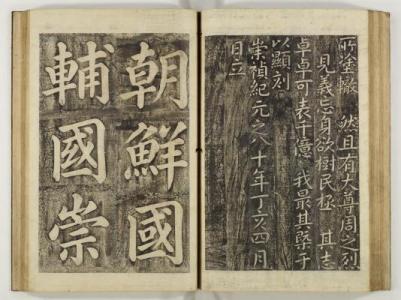 所塗轍 然且有大尊周之烈
見義忘身欲樹民極 其志
卓卓可表千億 我最其槩于
以顯刻
崇禎紀元之八十年丁亥四月
日立
朝鮮國
輔國崇